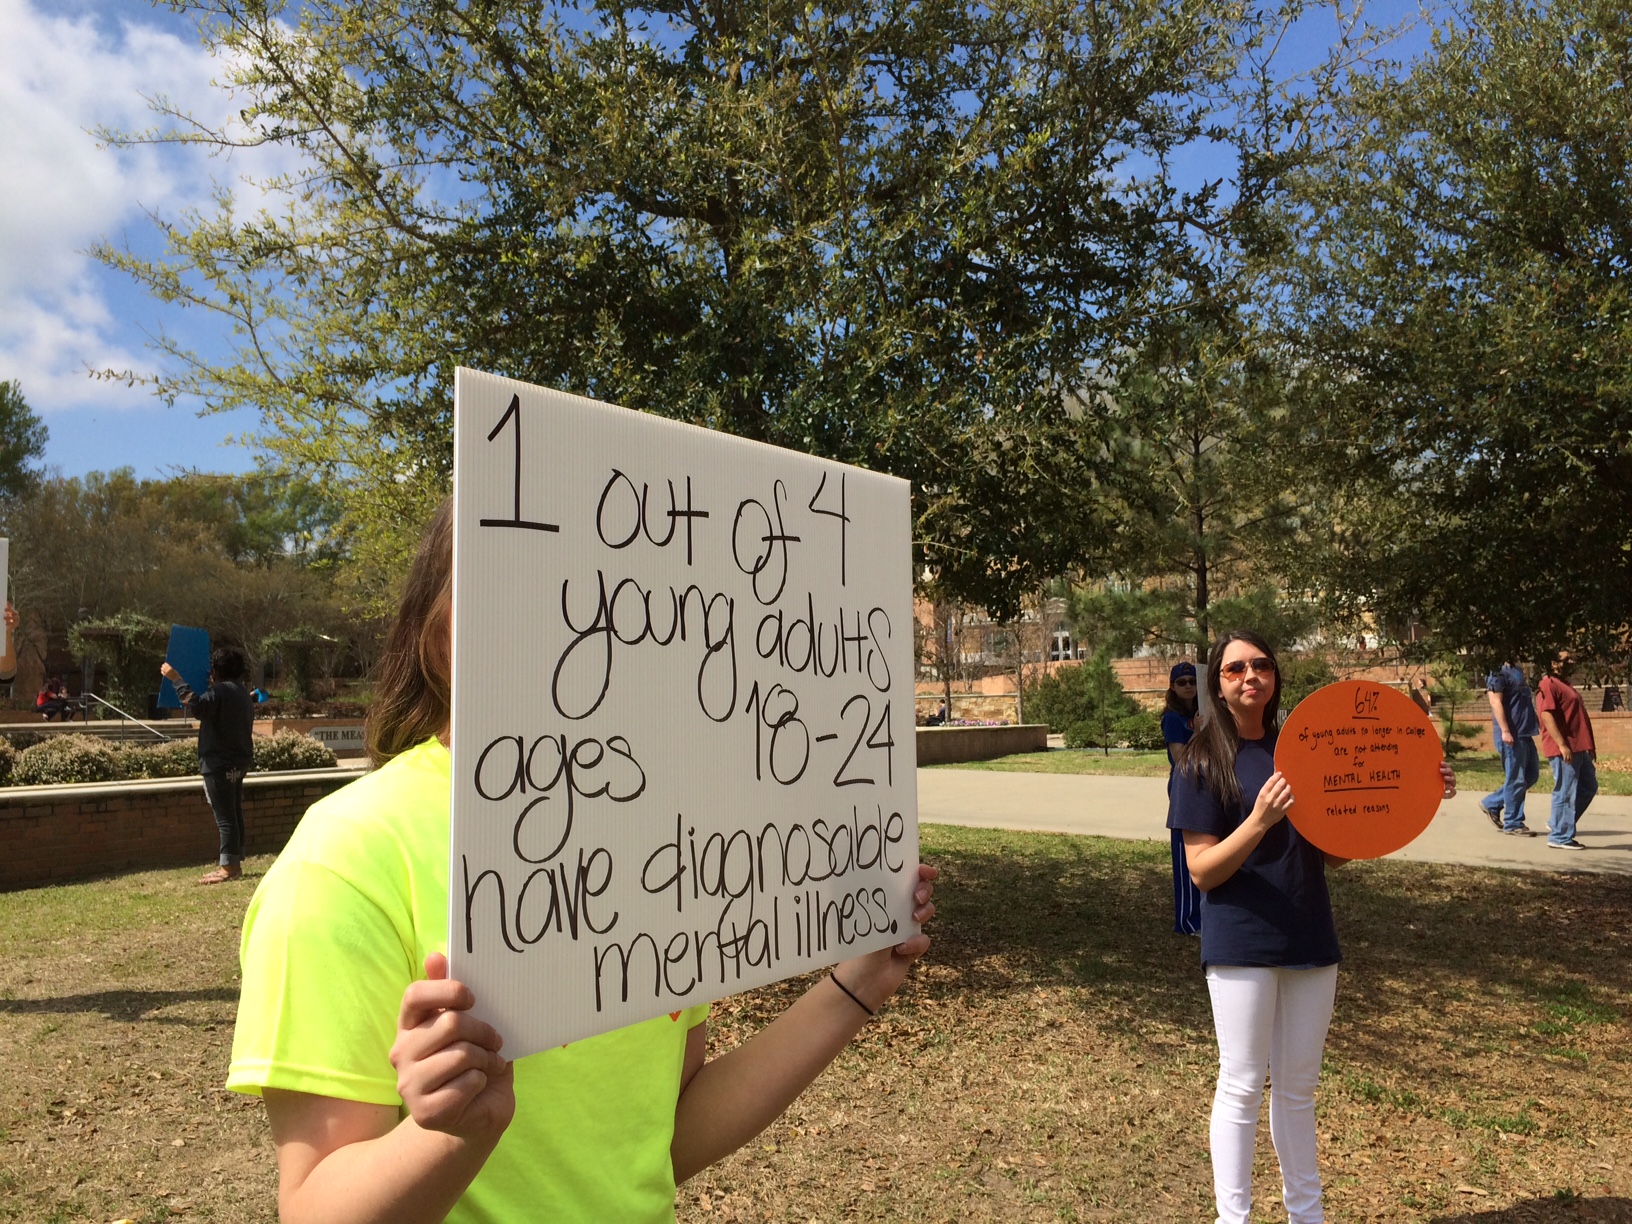 1 out of 4
young adults
ages 18-24
have diagnosable
mental illness.
64%
of young adults no longer in college
are not attending
for
MENTAL HEALTH
related reasons
"THE MEAS